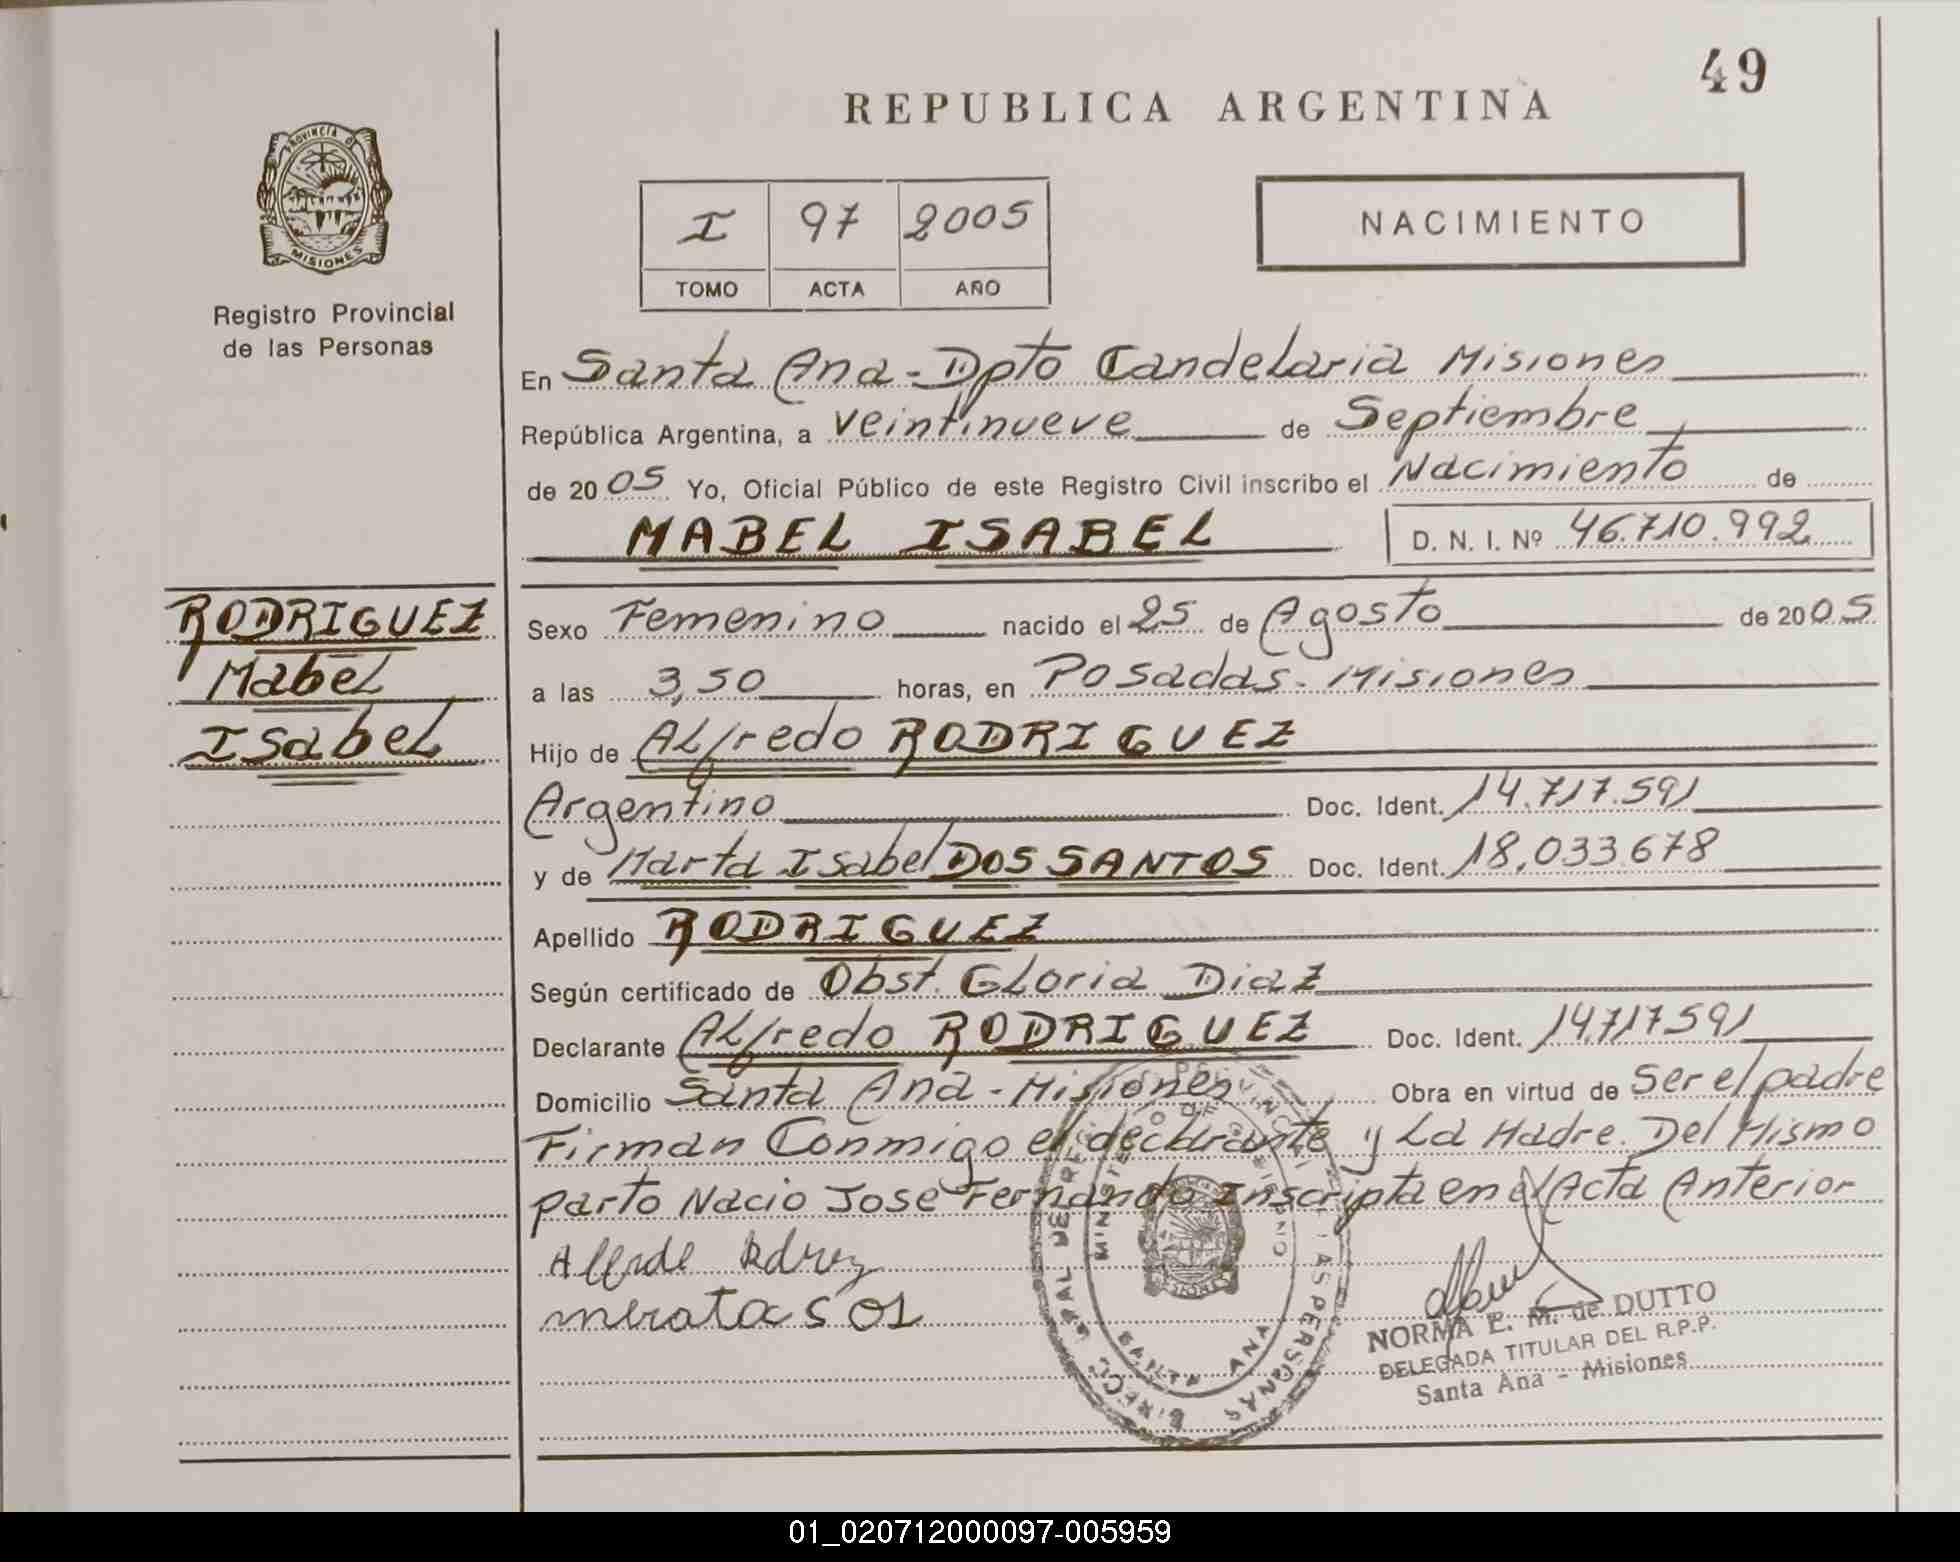 49
REPUBLICA ARGENTINA
PROVINCIA DE
MISIONES
Registro Provincial
de las Personas
I 97 2005
TOMO ACTA AÑO
NACIMIENTO
En Santa Ana - Dpto Candelaria Misiones
República Argentina, a veintinueve de Septiembre
de 2005 Yo, Oficial Público de este Registro Civil inscribo el Nacimiento de
MABEL ISABEL D. N. I. Nº 46.710.992
RODRIGUEZ
Mabel
Isabel
Sexo Femenino nacido el 25 de Agosto de 2005
a las 3,50 horas, en Posadas - Misiones
Hijo de Alfredo RODRIGUEZ
Argentino Doc. Ident. 14.717.591
y de Marta Isabel DOS SANTOS Doc. Ident. 18.033.678
Apellido RODRIGUEZ
Según certificado de Obst. Gloria Diaz
Declarante Alfredo RODRIGUEZ Doc. Ident. 14717591
Domicilio Santa Ana - Misiones Obra en virtud de Ser el padre
Firman Conmigo el declarante y La Madre. Del Mismo
parto Nacio Jose Fernando Inscripta en el Acta Anterior
SANTA ANA
NORMA E. M. de DUTTO
DELEGADA TITULAR DEL R.P.P.
Santa Ana - Misiones
01_020712000097-005959